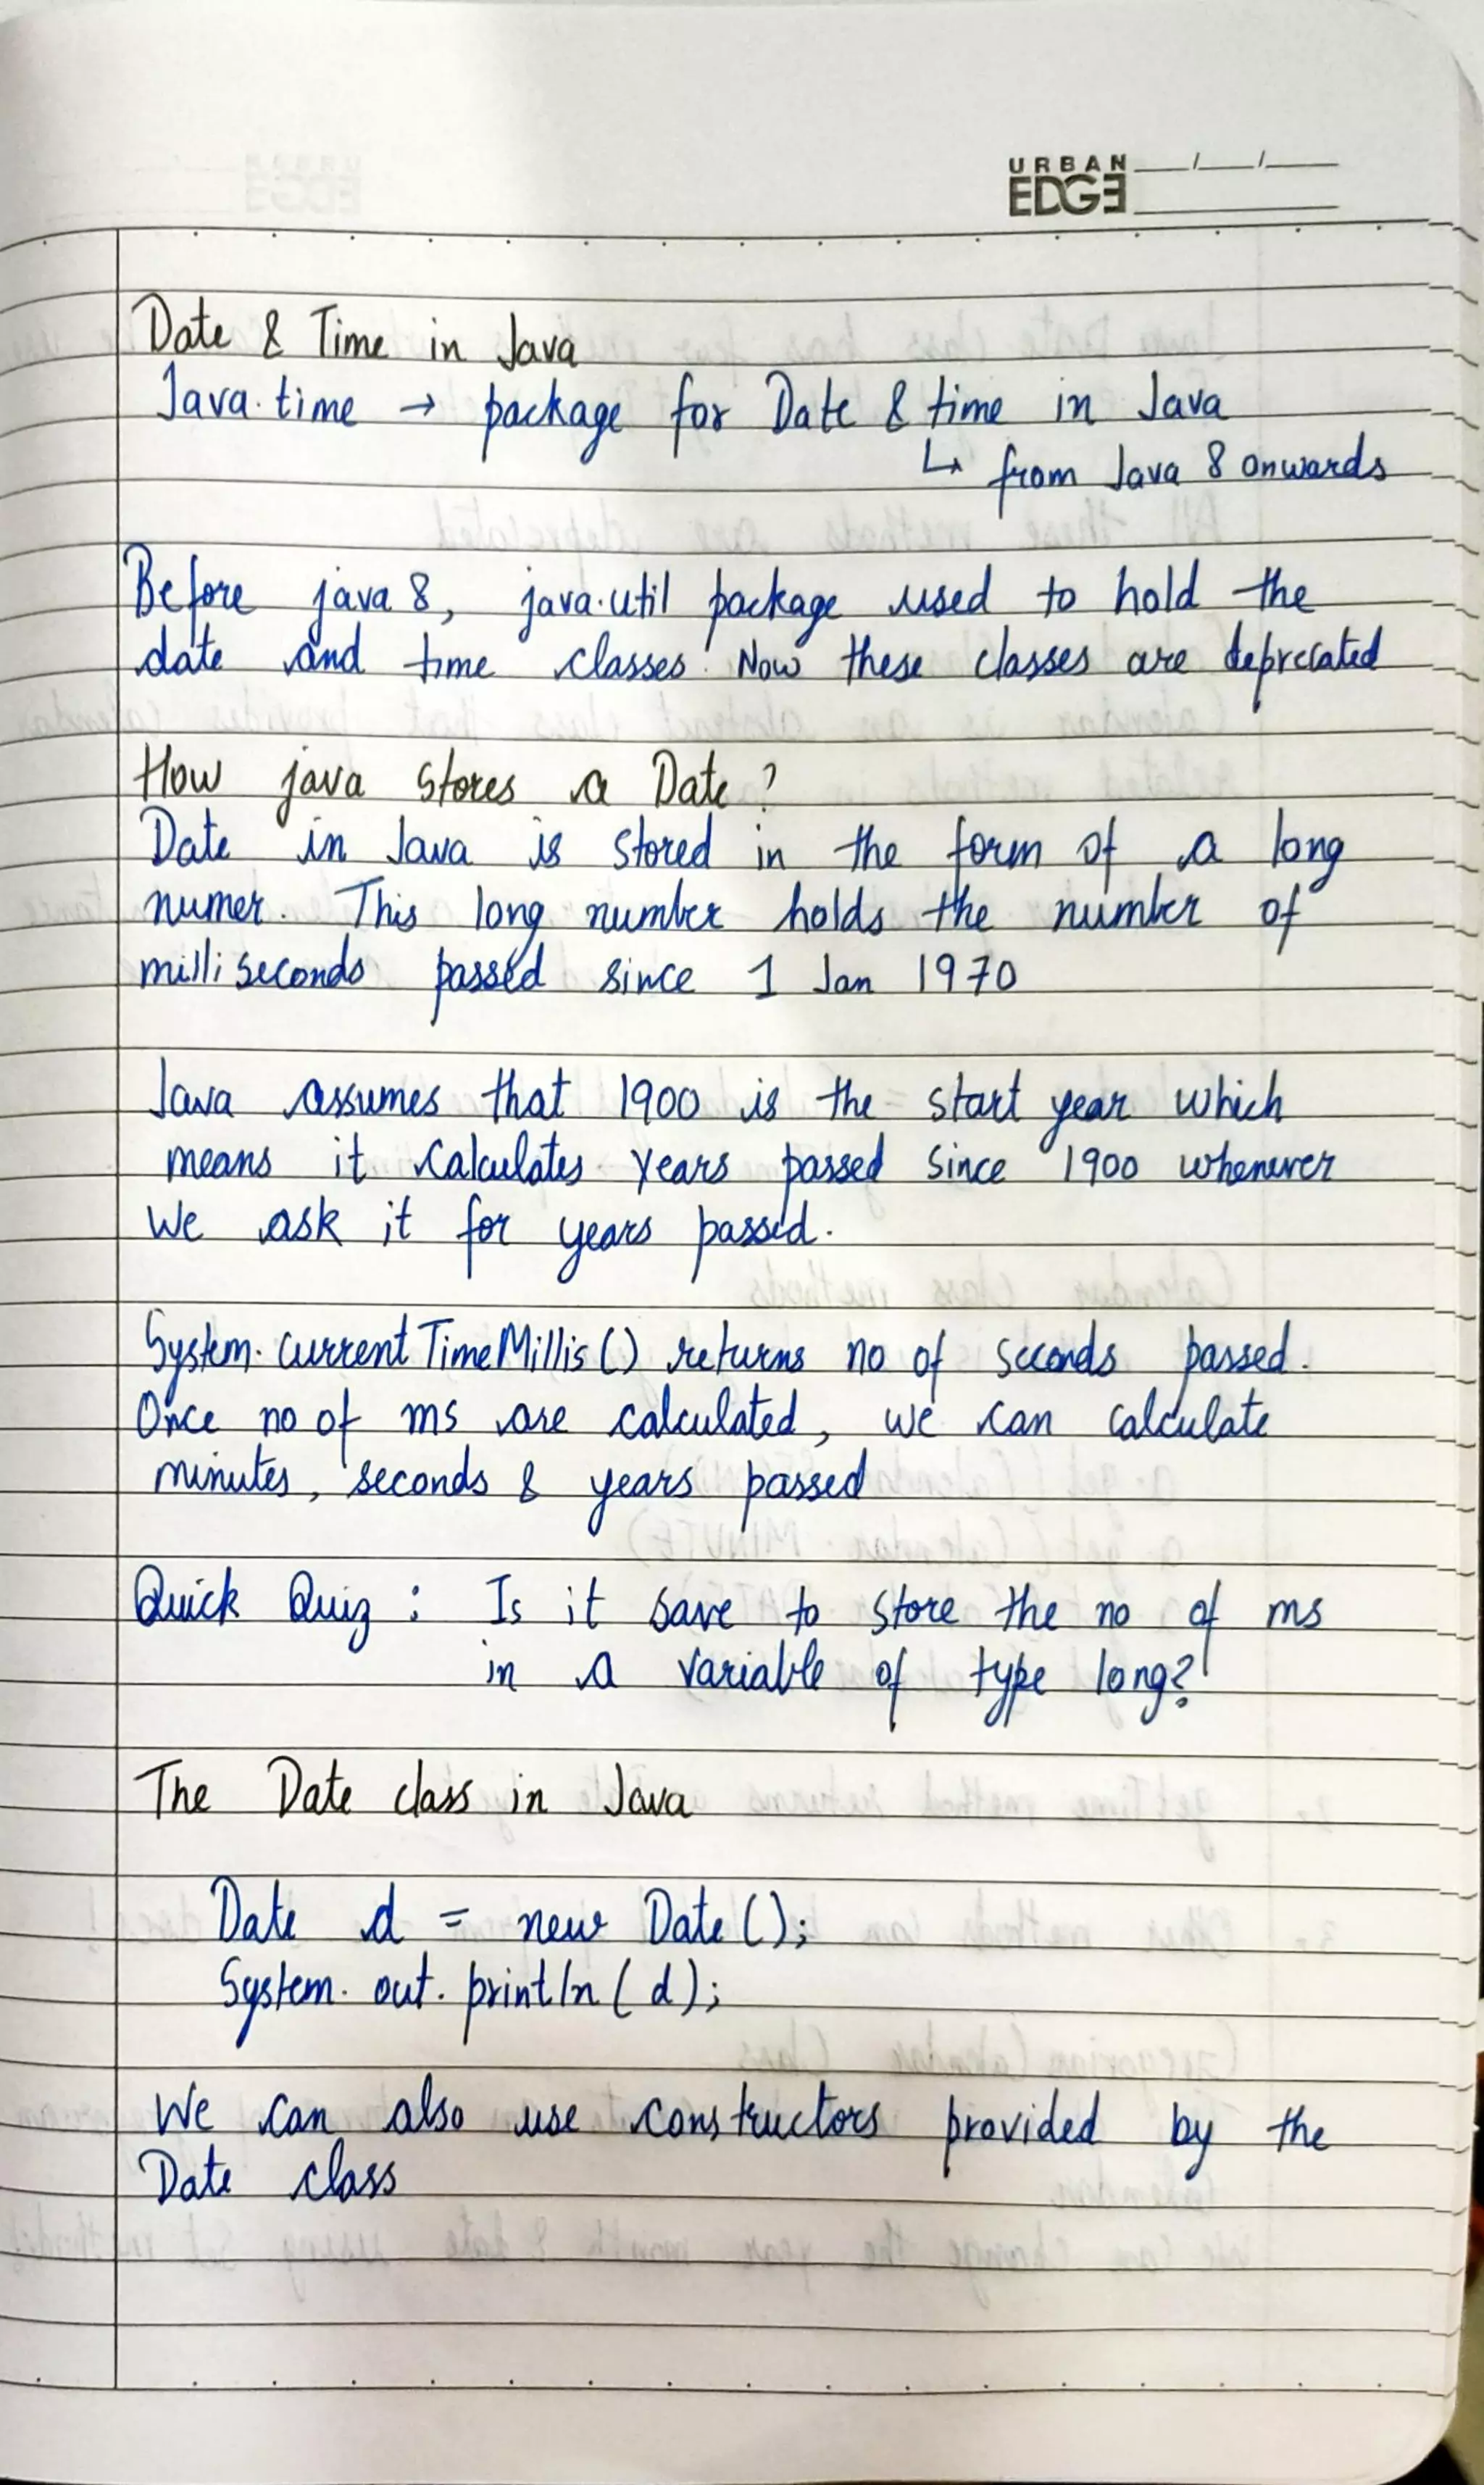 URBAN
EDGE
Date & Time in Java
Java.time → package for Date & time in Java
↳ from Java 8 onwards
Before java 8, java.util package used to hold the
date and time classes. Now these classes are deprcated
How java stores a Date?
Date in Java is stored in the form of a long
numer. This long number holds the number of
milliseconds passed since 1 Jan 1970
Java assumes that 1900 is the start year which
means it calculates years passed since 1900 whenever
we ask it for years passed.
System.currentTimeMillis() returns no of seconds passed.
Once no of ms are calculated, we can calculate
minutes, seconds & years passed
Quick Quiz : Is it save to store the no of ms
in a variable of type long?
The Date class in Java
Date d = new Date();
System.out.println(d);
We can also use constructors provided by the
Date class